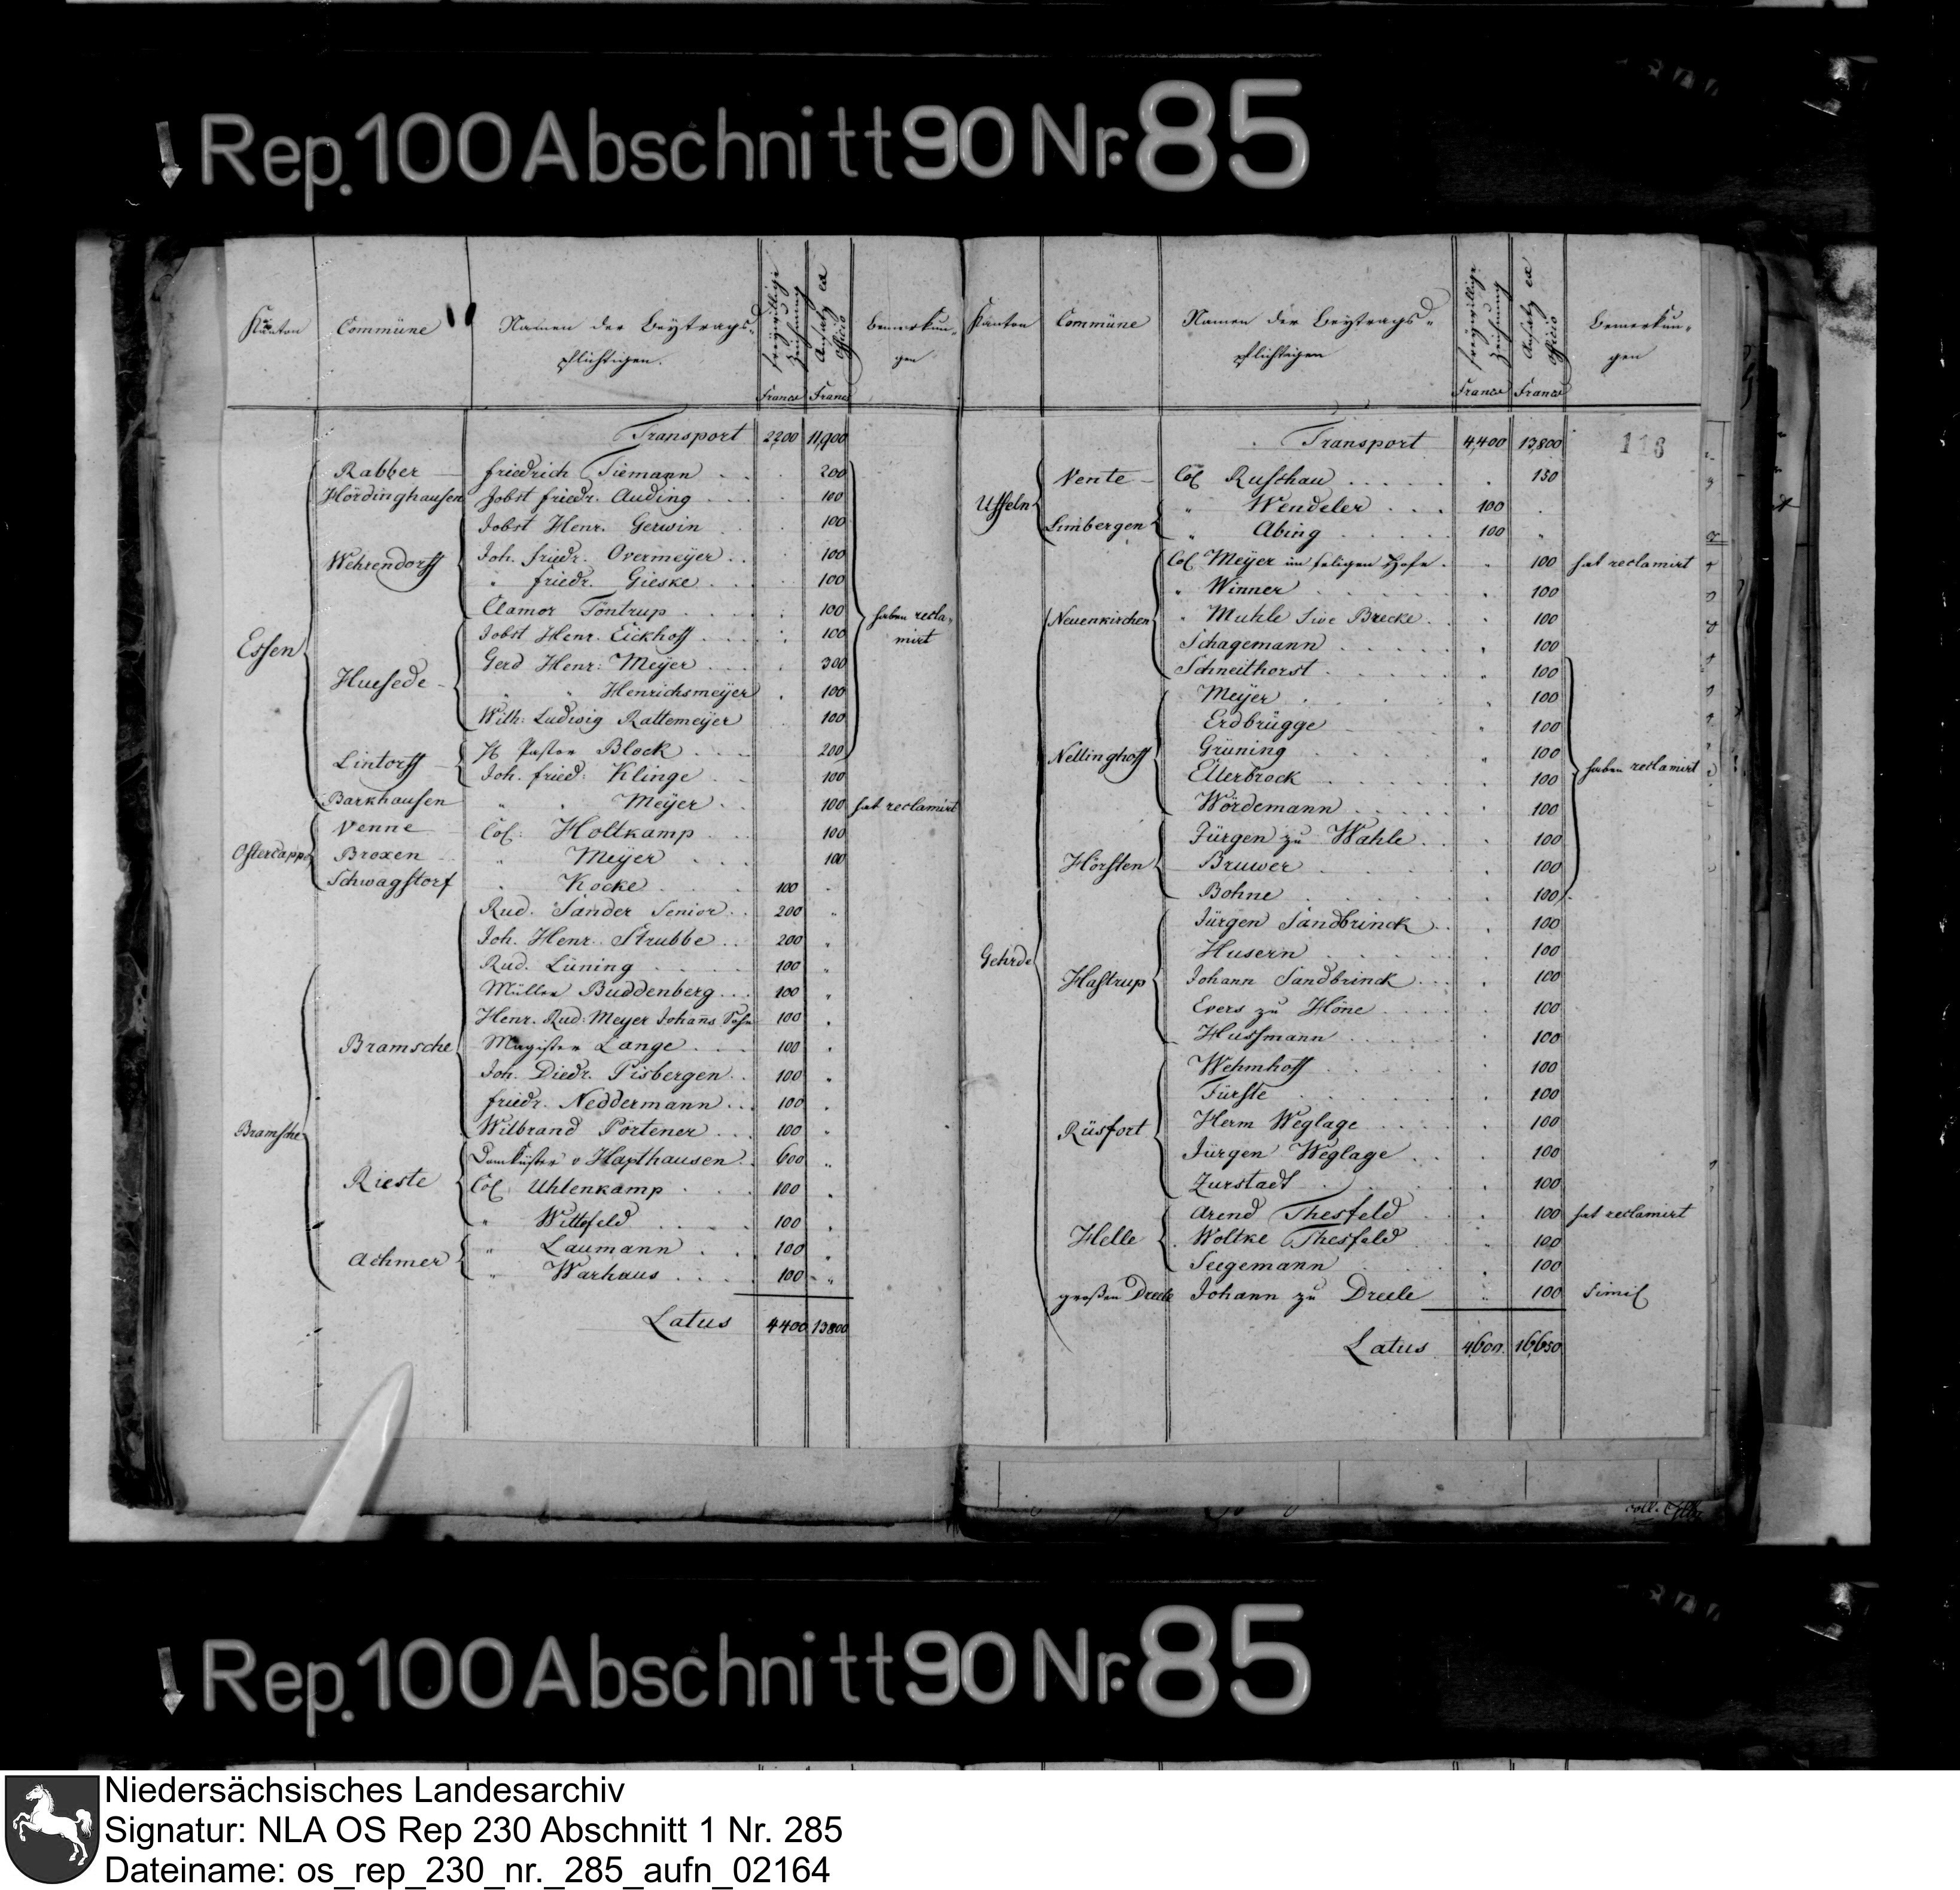 Rep. 100 Abschnitt 90 Nr. 85
Kanton Commüne Namen der Beytrags- freywillige Zeichnung Ansatz ex officio Bemerkun-
pflichtigen. gen
Francs Francs
Transport 2200 11,900
Essen Rabber friedrich Tiemann 200
Hördinghausen Jobst friedr. Auding 100
Wehrendorff Jobst Henr. Gerwin 100
Joh. friedr. Overmeÿer 100
" friedr. Gieske 100
Clamor Töntrup 100
Huesede Jobst Henr. Eickhoff 100
Gerd Henr: Meÿer 300
" " Henrichsmeÿer 100
Wilh: Ludwig Rattemeÿer 100
haben recla-
mirt
Lintorff H Pastor Block 200
Joh. fried: Klinge 100
Barkhausen " " Meÿer 100 hat reclamirt
Ostercappeln Venne Col: Holtkamp 100
Broxen " Meÿer 100
Schwagstorf " Kocke 100
Bramsche Bramsche Rud. Sander Senior 200
Joh. Henr. Strubbe 200
Rud. Lüning 100
Müller Buddenberg 100
Henr. Rud: Meyer Johañs Sohn 100
Magister Lange 100
Joh. Diedr. Pisbergen 100
friedr. Neddermann 100
Wilbrand Pörtener 100
Rieste Domküster v Haxthausen 600
Col. Uhlenkamp 100
" Wittefeld 100
Achmer " Laumann 100
" Warhaus 100
Latus 4400 13800
Kanton Commüne Namen der Beytrags- freywillige Zeichnung Ansatz ex officio Bemerkun-
pflichtigen gen
Francs Francs
Transport 4,400 13,800
118
Uffeln Vente Col Rusthau 150
Limbergen " Wendeler 100
" Abing 100
Gehrde Neuenkirchen Col Meÿer im seligen Hofe 100 hat reclamirt
" Winner 100
" Muhle sive Brecke 100
Schagemann 100
Schneithorst 100
Nellinghoff Meÿer 100
Erdbrügge 100
Grüning 100
Ellerbrock 100
Wördemann 100
haben reclamirt
Hörsten Jürgen zu Wahle 100
Bruwer 100
Bohne 100
Hastrup Jürgen Sandbrinck 100
Husern 100
Johann Sandbrinck 100
Evers zu Höne 100
Hussmann 100
Rüsfort Wehmhoff 100
Fürste 100
Herm Weglage 100
Jürgen Weglage 100
Zurstadt 100
Helle Arend Thesfeld 100 hat reclamirt
Woltke Thesfeld 100
Seegemann 100
großen Dreele Johann zu Dreele 100 Simil
Latus 4,600. 16,650
Rep. 100 Abschnitt 90 Nr. 85
Niedersächsisches Landesarchiv
Signatur: NLA OS Rep 230 Abschnitt 1 Nr. 285
Dateiname: os_rep_230_nr._285_aufn_02164